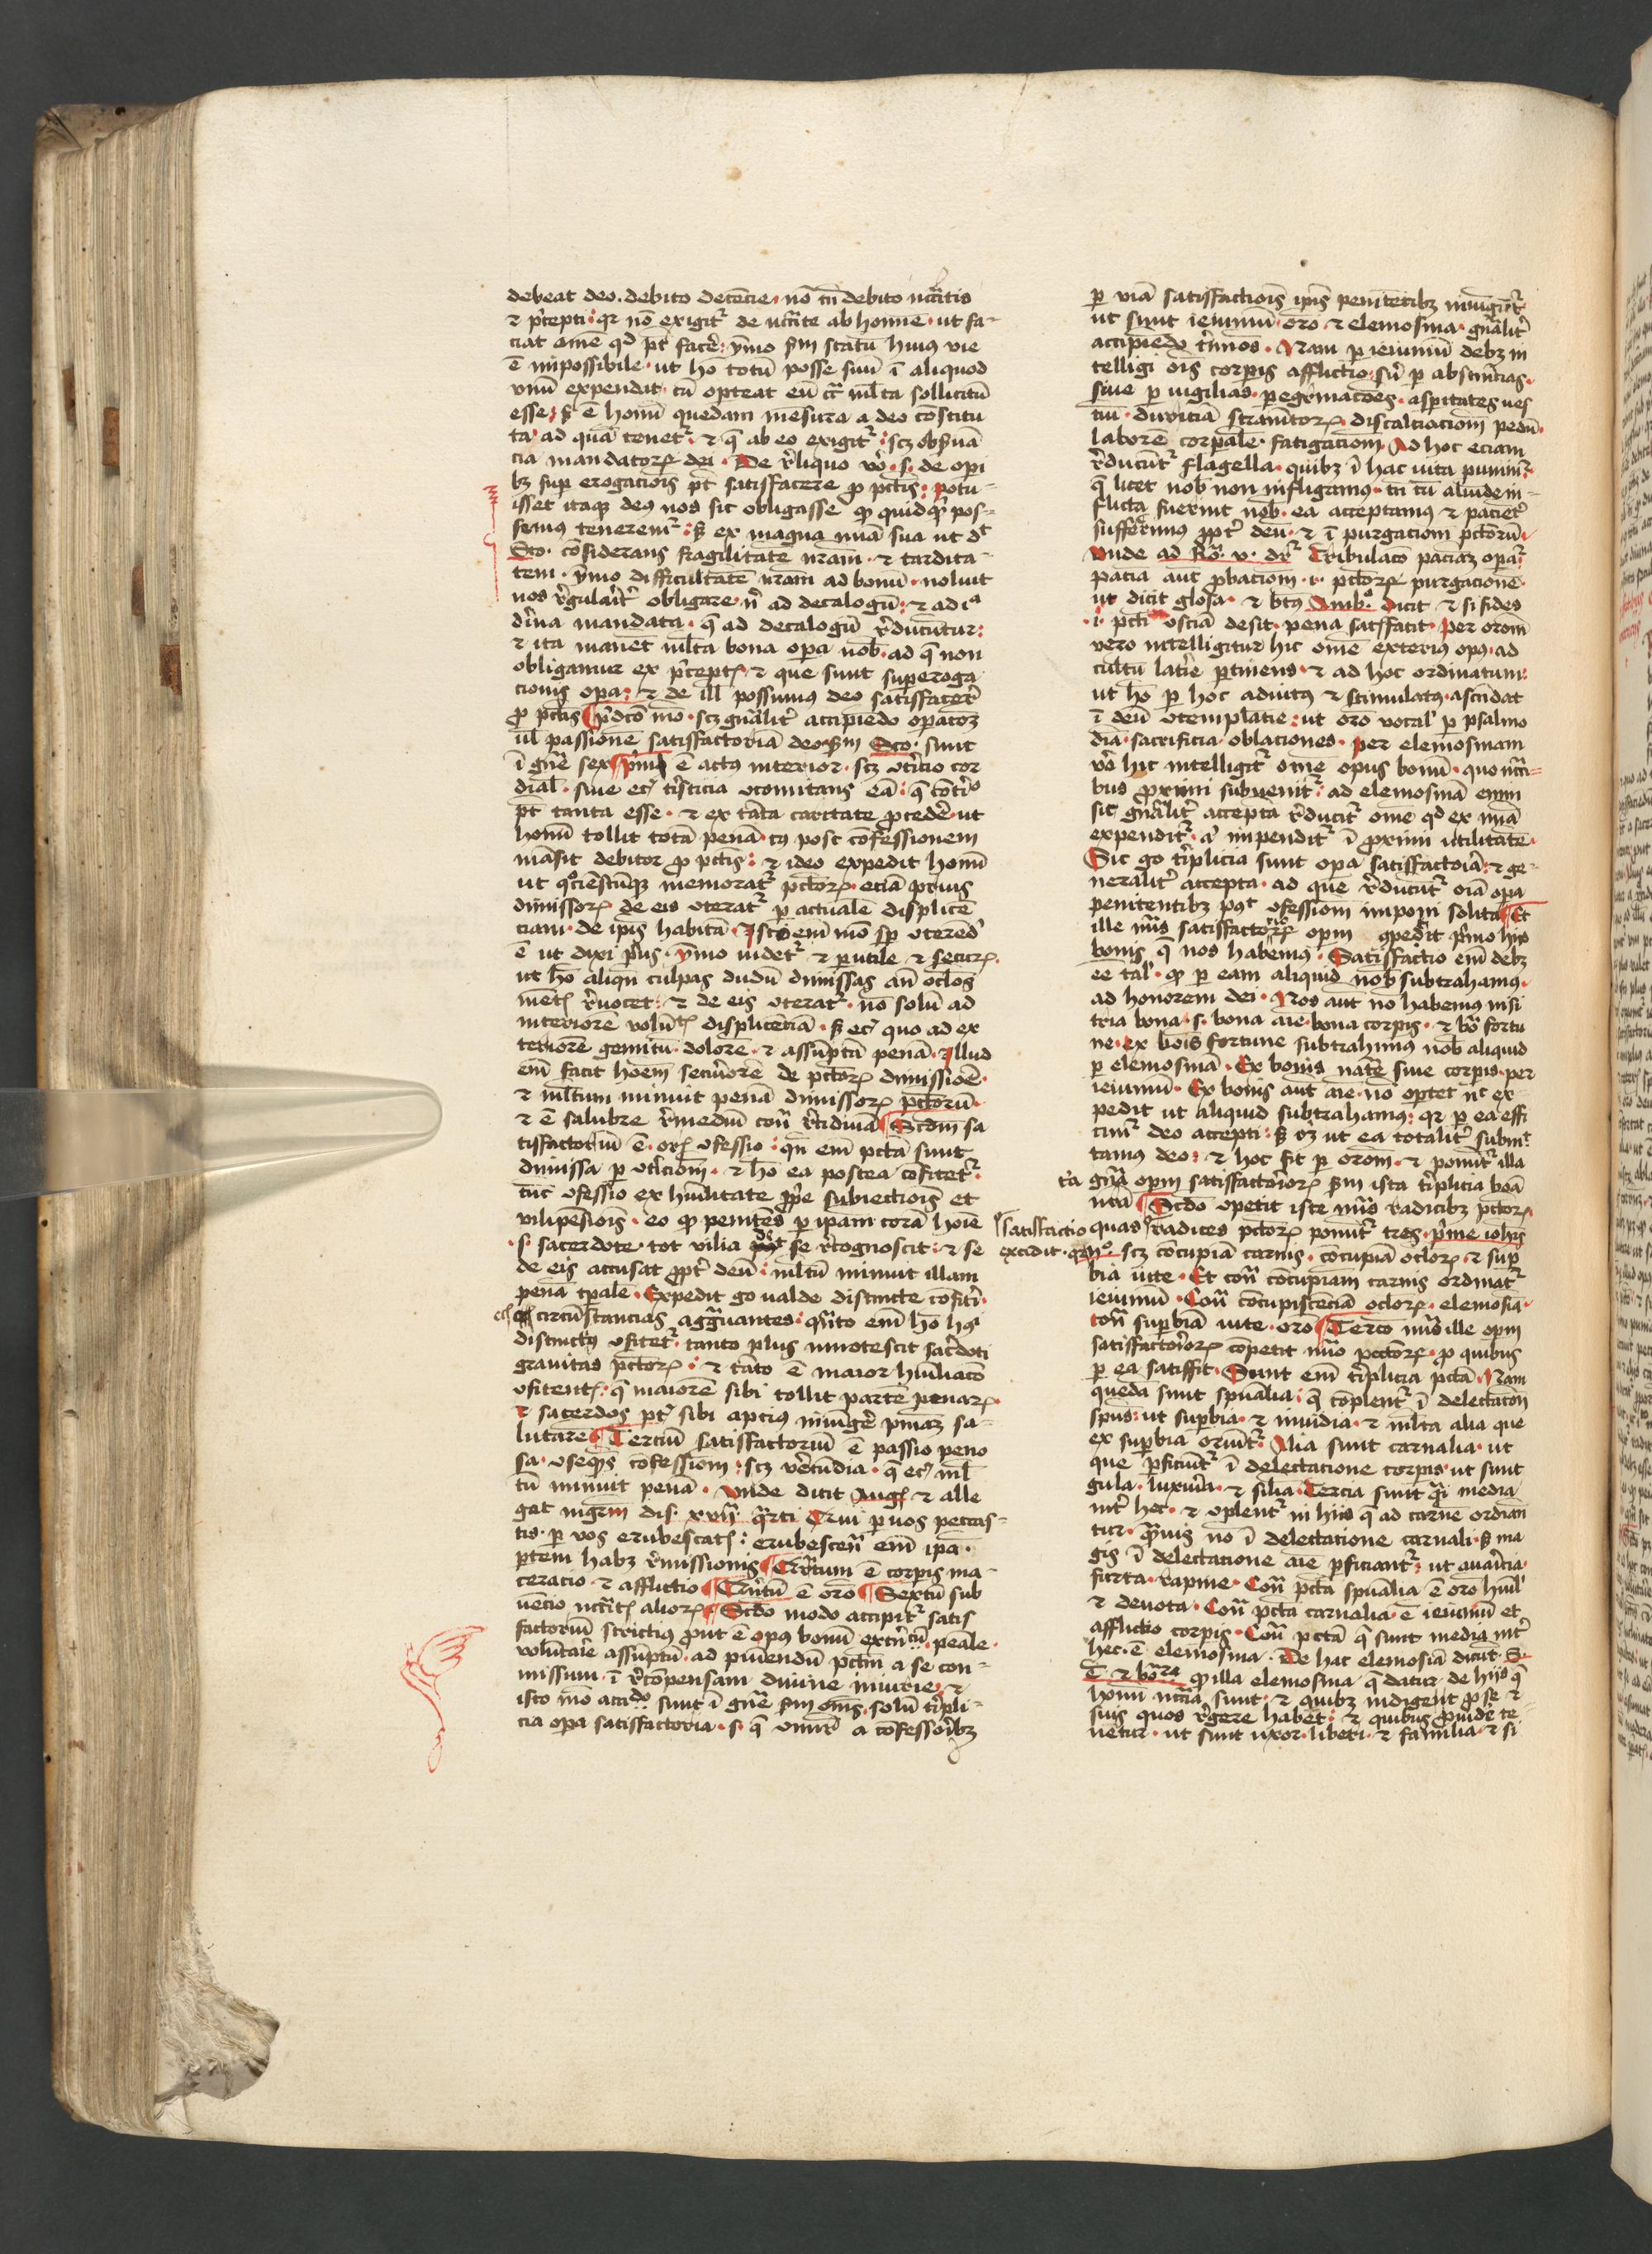 debeat deo. debito decēcie. nō tn̄ debito nccītis
⁊ p̄cepti: qr nō exigit᷑ de nccīte ab homīe. ut fa-
ciat om̄e qd p̄t facē: ymo scdm statū huiꝰ vie
ē impossibile. ut hō totū posse suū ī aliquod
vnū expendat. cū oporteat eū cir mlta sollicitū
esse. sꝫ ē homī quedam mēsura a deo cōstitu
ta ad quā tenet᷑. ⁊ q̄ ab eo exigit᷑: scꝫ obsuā
cia mandatoꝝ dei. De rliquo vo. s. de opi
bꝫ sup erogacois p̄t satisfacere ꝓ pctis: potu-
isset itaqꝫ deꝰ nos sic obligasse ꝙ quidqd pos-
semus teneremr: sꝫ ex magna mīa sua ut dt
Sco. cōsiderans fragilitatē nram. ⁊ tardita-
tem. ymo difficultatē nram ad bonū. noluit
nos rgularit᷑ obligare. n ad decalogū: ⁊ ad iᵃ
diuina mandata. q̄ ad decalogū rducūtur:
⁊ ita manēt mlta bona opa nob. ad q̄ non
obligamur ex p̄ceptꝭ. ⁊ que sunt superoga
cionis opa: ⁊ de ill possumus deo satisfacē
ꝓ pctis p̄dco mo. scꝫ gnalit᷑ accipiēdo opacoꝫ
ul passionē satisfactoriā deo. scdm Sco. sunt
ī gn̄e sex p̄mū ē actꝰ interior. scꝫ 9tricio cor
dial. siue ec tristicia 9comitans eā: q̄ 9tricio
p̄t tanta esse. ⁊ ex tāta caritate ꝓcedē. ut
homī tollit totā penā. cꝰ post cōfessionem
māsit debitor ꝓ pctis: ⁊ ideo expedit homī
ut qciēscūqꝫ memorat᷑ pctoꝝ. eciā priꝰ
dimissoꝝ de eis 9terat᷑ p actualē displicē
ciam. de ipis habitā. Isto em mo sp 9tered
ē ut dixi priꝰ. ymo videt᷑ ⁊ putile ⁊ securꝝ.
ut hō aliqn culpas dudū dimissas an oclos
mētꝭ rvocet: ⁊ de eis 9terat᷑. nō solū ad
interiorē volutꝭ displicēciā. sꝫ ec quo ad ex
teriorē gemitū. dolorē. ⁊ assūptā penā. Illud
em facit hoīem securiorē de pctoꝝ dimissiōe.
⁊ mltum minuit penā dimissoꝝ pctorū.
⁊ ē salubre rmediū con̄ rcidiuā Scdm sa
tisfactoriū ē. oris 9fessio: qn em pcta sunt
dimissa p 9tricom. ⁊ hō ea postea cōfitet᷑.
tūc 9fessio ex humilitate ꝓpe subiectiois et
vilipēsiois. eo ꝙ penitēs p ipam corā hoīe
.s. sacerdote. tot vilia de se rcognoscit: ⁊ se
de eis accusat ꝓpt deū: mltū minuit illam
penā tpale. Expedit go valde distincte cōfitei.
circūstancias aggrauantes: quāto em hō hꝰ
distinctiꝰ 9fitet᷑. tanto plus innotescit sacerdoti
grauitas pctoꝝ: ⁊ tāto ē maior humiliaco
9fitentꝭ: q̄ maiorē sibi tollit partē penaꝝ.
⁊ sacerdos p̄t sibi apciꝰ iniungē pniaꝫ sa-
lutarē Terciū satisfactoriū ē passio peno
sa. 9sequēs cōfessiom: scꝫ vecūdia. q̄ ec ml
tū minuit penā. Vnde dicit Augꝰ ⁊ alle
gat mgrm dis. xvii qrti Qui p uos peccas-
tis. p vos erubescatꝭ: erubescen em ipa.
ptem habꝫ rmissionis Qrtum ē corpis ma-
ceracio. ⁊ afflictio Qntū ē oro Sextū sub
uēcio nccītꝭ alioꝝ Scdo modo accipit᷑ satis
factoriū strictiꝰ ꝓut ē opꝰ bonū extriⁿcū. penale.
volutarie assūptū. ad puniendū pctm a se con-
missum. ī rcōpensam diuine iniurie ⁊
isto mo accido sunt ī gn̄e scdm om̄s. solū tripli-
cia opa satisfactoria. s. q̄ vniūr a cōfessoribꝫ
p viā satisfactiois ipis penitētibꝫ iniūgūt᷑
ut sunt ieiuniū. oro ⁊ elemosina. gn̄alit᷑
accipiēdo t̄mios. Nam p ieiuniū debꝫ in
telligi ois corpis afflictio: siue p abstinēcias.
siue p vigilias. pegrinacōes. aspitates ves
tiū. duriciā stramentoꝝ. discalciacioni pedū.
laborē corpale. fatigaciom. Ad hoc eciam
rducūt᷑ flagella. quibꝫ ī hac vita punim᷑
q̄ licet nob non infligamꝰ. tn cū aliunde in-
flicta fuerint nob. ea acceptamꝰ ⁊ paciēt᷑
sufferimꝰ ꝓpt deū. ⁊ ī purgaciom pctorū.
Vnde ad Ro. v. dr Tribulaco paciaꝫ opat᷑
pacīa aut ꝓbaciom. i. pctoꝝ purgacionē.
ut dicit glosa. ⁊ btꝰ Ambꝰ. dicit ⁊ si fides
.i. pcti 9sciā desit. pena satisfacit. Per orom
vero intelligitur hic om̄e exteriꝰ opꝰ. ad
cultū latrie ptinens. ⁊ ad hoc ordinatum:
ut hō p hoc adiutꝰ ⁊ stimulatꝰ. ascēdat
ī deū 9templatiē: ut oro vocal p psalmo
diā. sacrificia. oblaciones. Per elemosinam
vo hic intelligit᷑ om̄e opus bonū. quo ncci-
bus ꝓximi subuenit᷑: ad elemosinā enim
sic gnalit᷑ accepta rducit᷑ om̄e qd ex mīa
expendit᷑. aᵗ impendit᷑ ī ꝓximi utilitatē.
Sic go triplicia sunt opa satisfactoria: ⁊ ge-
neralit᷑ accepta. ad que rducūt᷑ oīa opa
penitentibꝫ post 9fessiom imponi solita Et
ille nūs satisfactorioꝝ opm 9pedit p̄mo hijs
bonis. q̄ nos habemꝰ. Satisfactio em debꝫ
ee tal. ꝙ p eam aliquid nob subtrahamꝰ.
ad honorem dei. Nos aut no habemꝰ nisi
tria bona. s. bona aīe. bona corpis. ⁊ bo fortu
ne. Ex bois fortune subtrahimꝰ nob aliquid
p elemosinā. Ex bonis nate siue corpis. per
ieiuniū. Ex bonis aut aīe. nō optet nc ex-
pedit ut aliquid subtrahamꝰ: qr p ea effi
cimr deo accepti: sꝫ oꝫ ut ea totalit᷑ submt
tamꝰ deo: ⁊ hoc fit p orom. ⁊ ponit᷑ illa
tᵃ gn̄a opm satisfactorioꝝ scdm ista triplicia boā
nrā Scdo 9petit iste nūs radicibꝫ pctoꝝ.
Satisfactio quas radices pctoꝝ ponit᷑ tres. p̄me iohis
excidit. scꝫ cōcupiā carnis. cōcupiā ocloꝝ. ⁊ sup
biā vite. Et con̄ cōcupiam carnis ordinat᷑
ieiuniū. Con̄ cōcupiscēciā ocloꝝ. elemosia.
con̄ supbiā vite. oro Tercio nūs ille opm
satisfactorioꝝ cōpetit nūo pctoꝝ. ꝓ quibus
p ea satisfit. Sunt em triplicia pcta. Nam
quedā sunt spualia: q̄ cōplent᷑ ī delectacōn
spus: ut supbia. ⁊ inuidia. ⁊ mlta alia que
ex supbia oriūt᷑. Alia sunt carnalia. ut
que pficiūt᷑ ī delectacione corpis. ut sunt
gula. luxuria. ⁊ silia. Tercia sunt qsi media
int hec. ⁊ 9plent᷑ in hijs q̄ ad carnē ordian
tur. quis no ī delectacione carnali. sꝫ ma
gis ī delectacione aīe pficiant᷑: ut auaricia.
furta. rapine. Con̄ pcta spualia ē oro humil
⁊ deuota. Con̄ pcta carnalia. ē ieiuniū et
afflictio corpis. Con̄ pcta q̄ sunt media int
hec. ē elemosina. De hac elemosīa dicūt. S.
T. ⁊ boᵃ. ꝙ illa elemosina q̄ datur de hijs q̄
homī nccīa sunt. ⁊ quibꝫ indigent ꝓ se ⁊
suis quos rgere habēt: ⁊ quibus ꝓuidē te-
netur. ut sunt uxor. liberi. ⁊ familia. ⁊ si